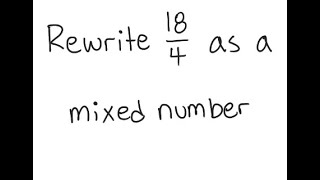 Rewrite 18/4 as a
mixed number